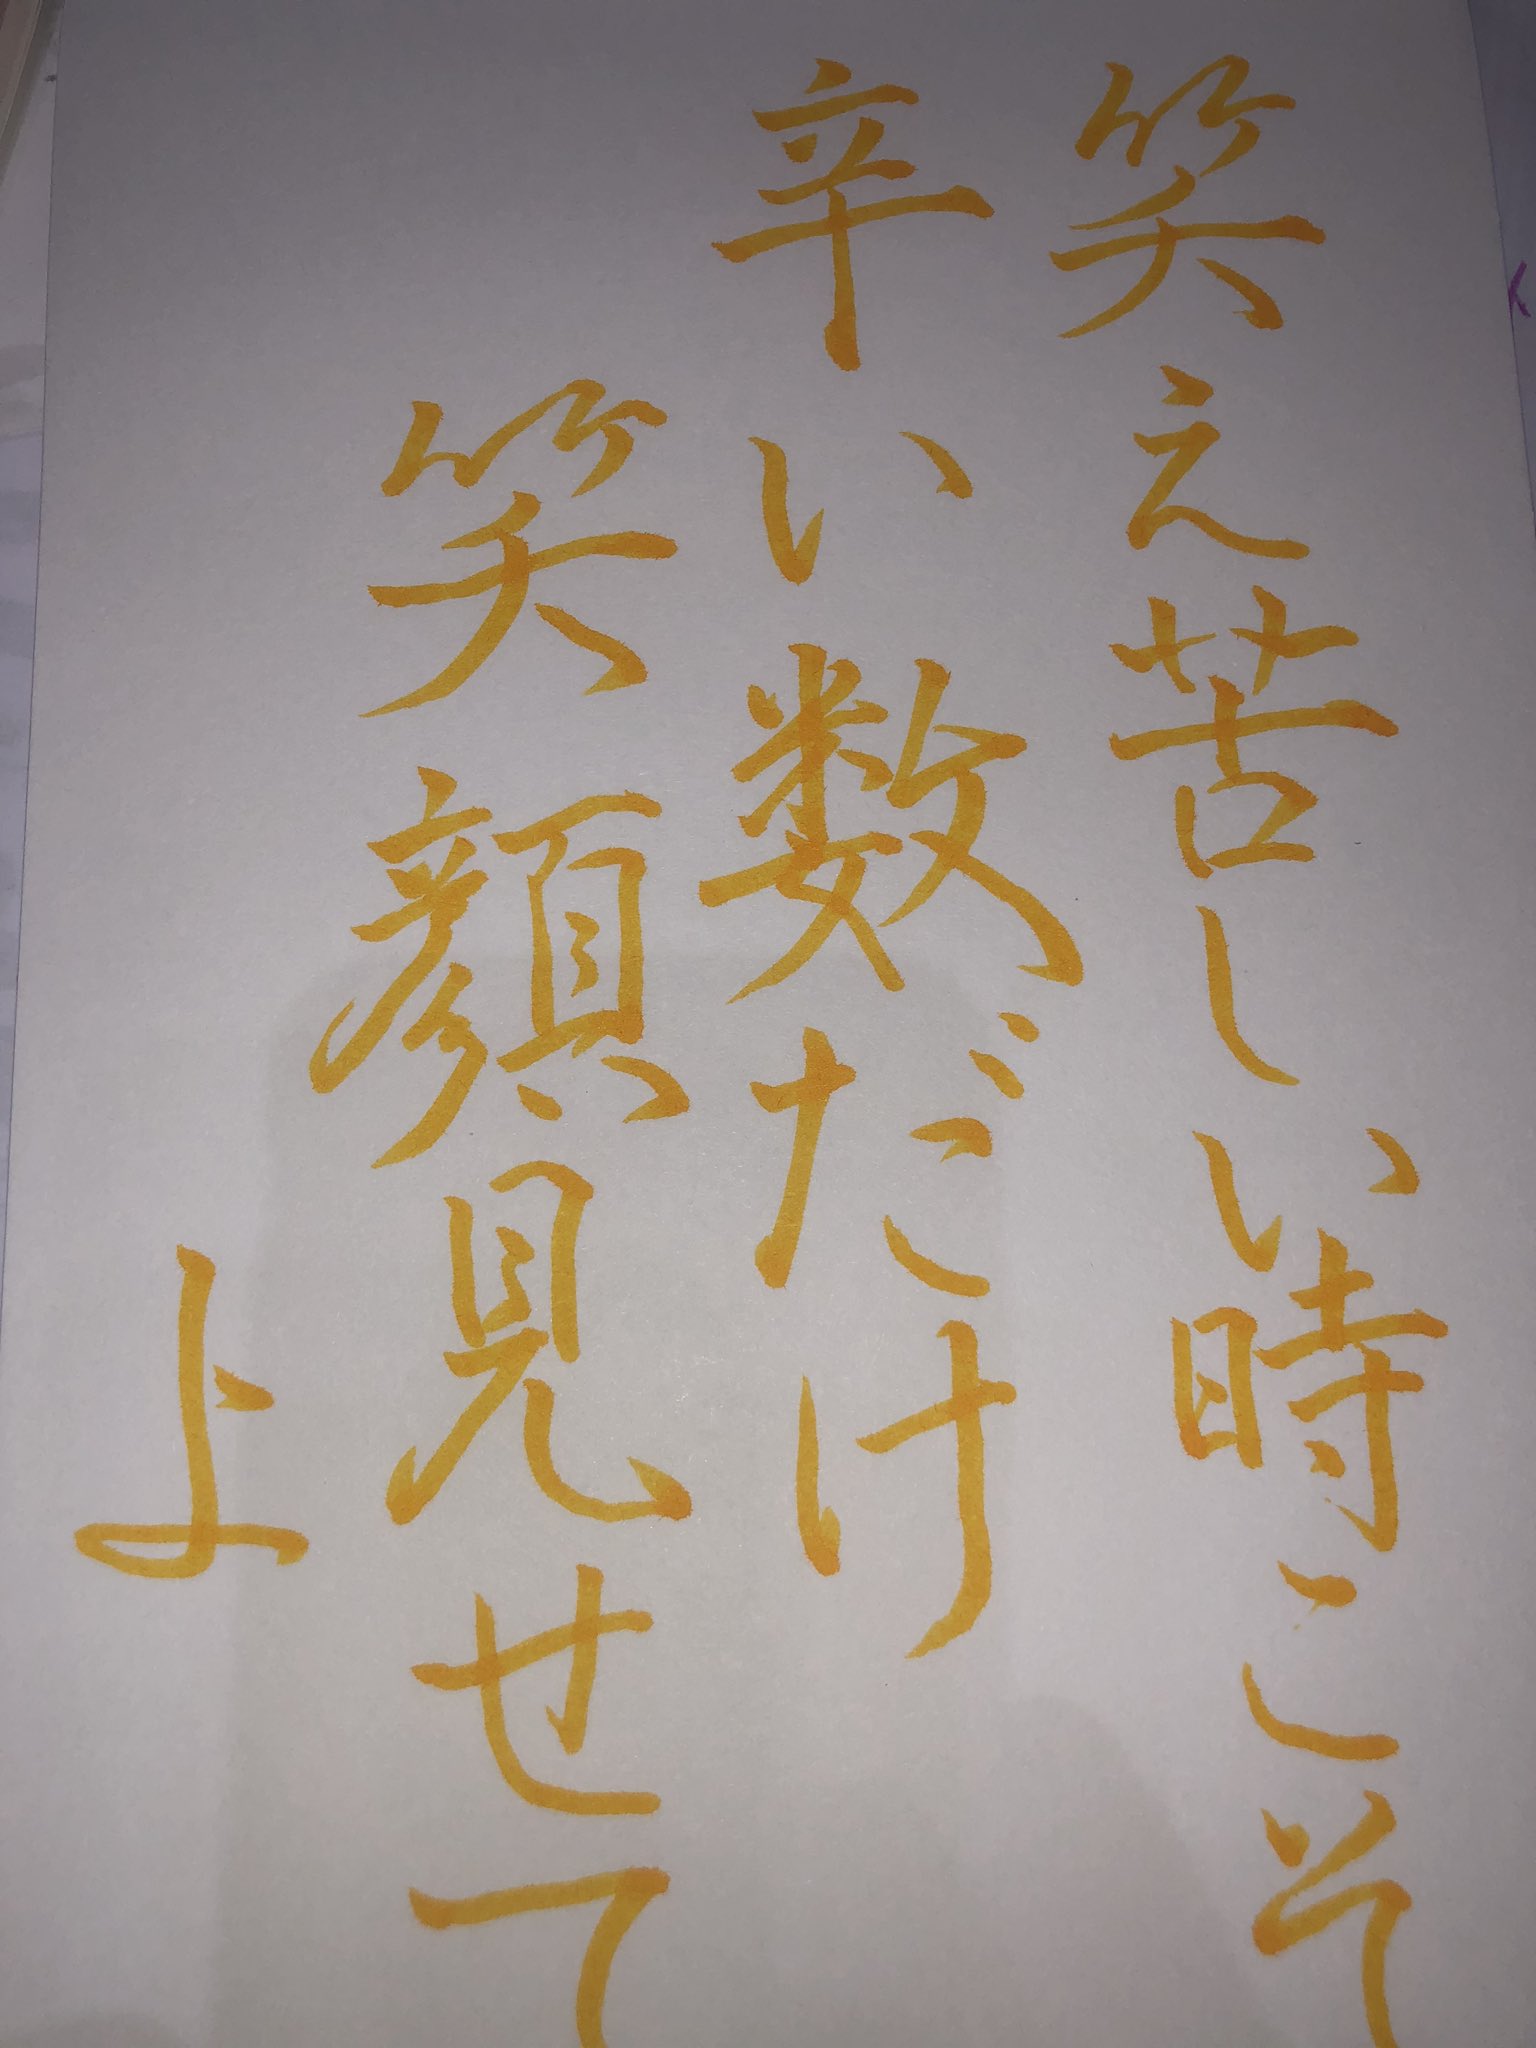 笑え苦しい時こそ
辛い数だけ
笑顔見せて
よ